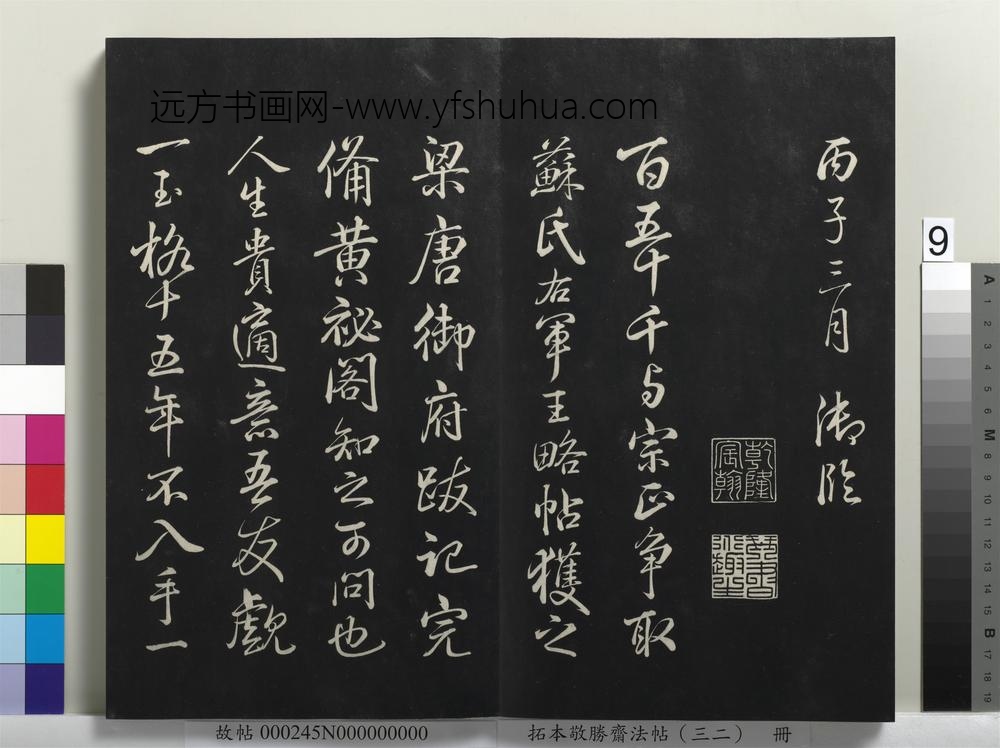 远方书画网-www.yfshuhua.com
丙子三月 御臨
乾隆宸翰
百五十千与宗正争取
蘇氏右軍王略帖獲之
梁唐御府跋記完
備黄祕閣知之可問也
人生貴適意吾友覷
一玉格十五年不入手一
9
A 1 2 3 4 5 6 M 8 9 10 11 12 13 14 15 B 17 18 19
故帖 000245N000000000
拓本敬勝齋法帖（三二） 冊